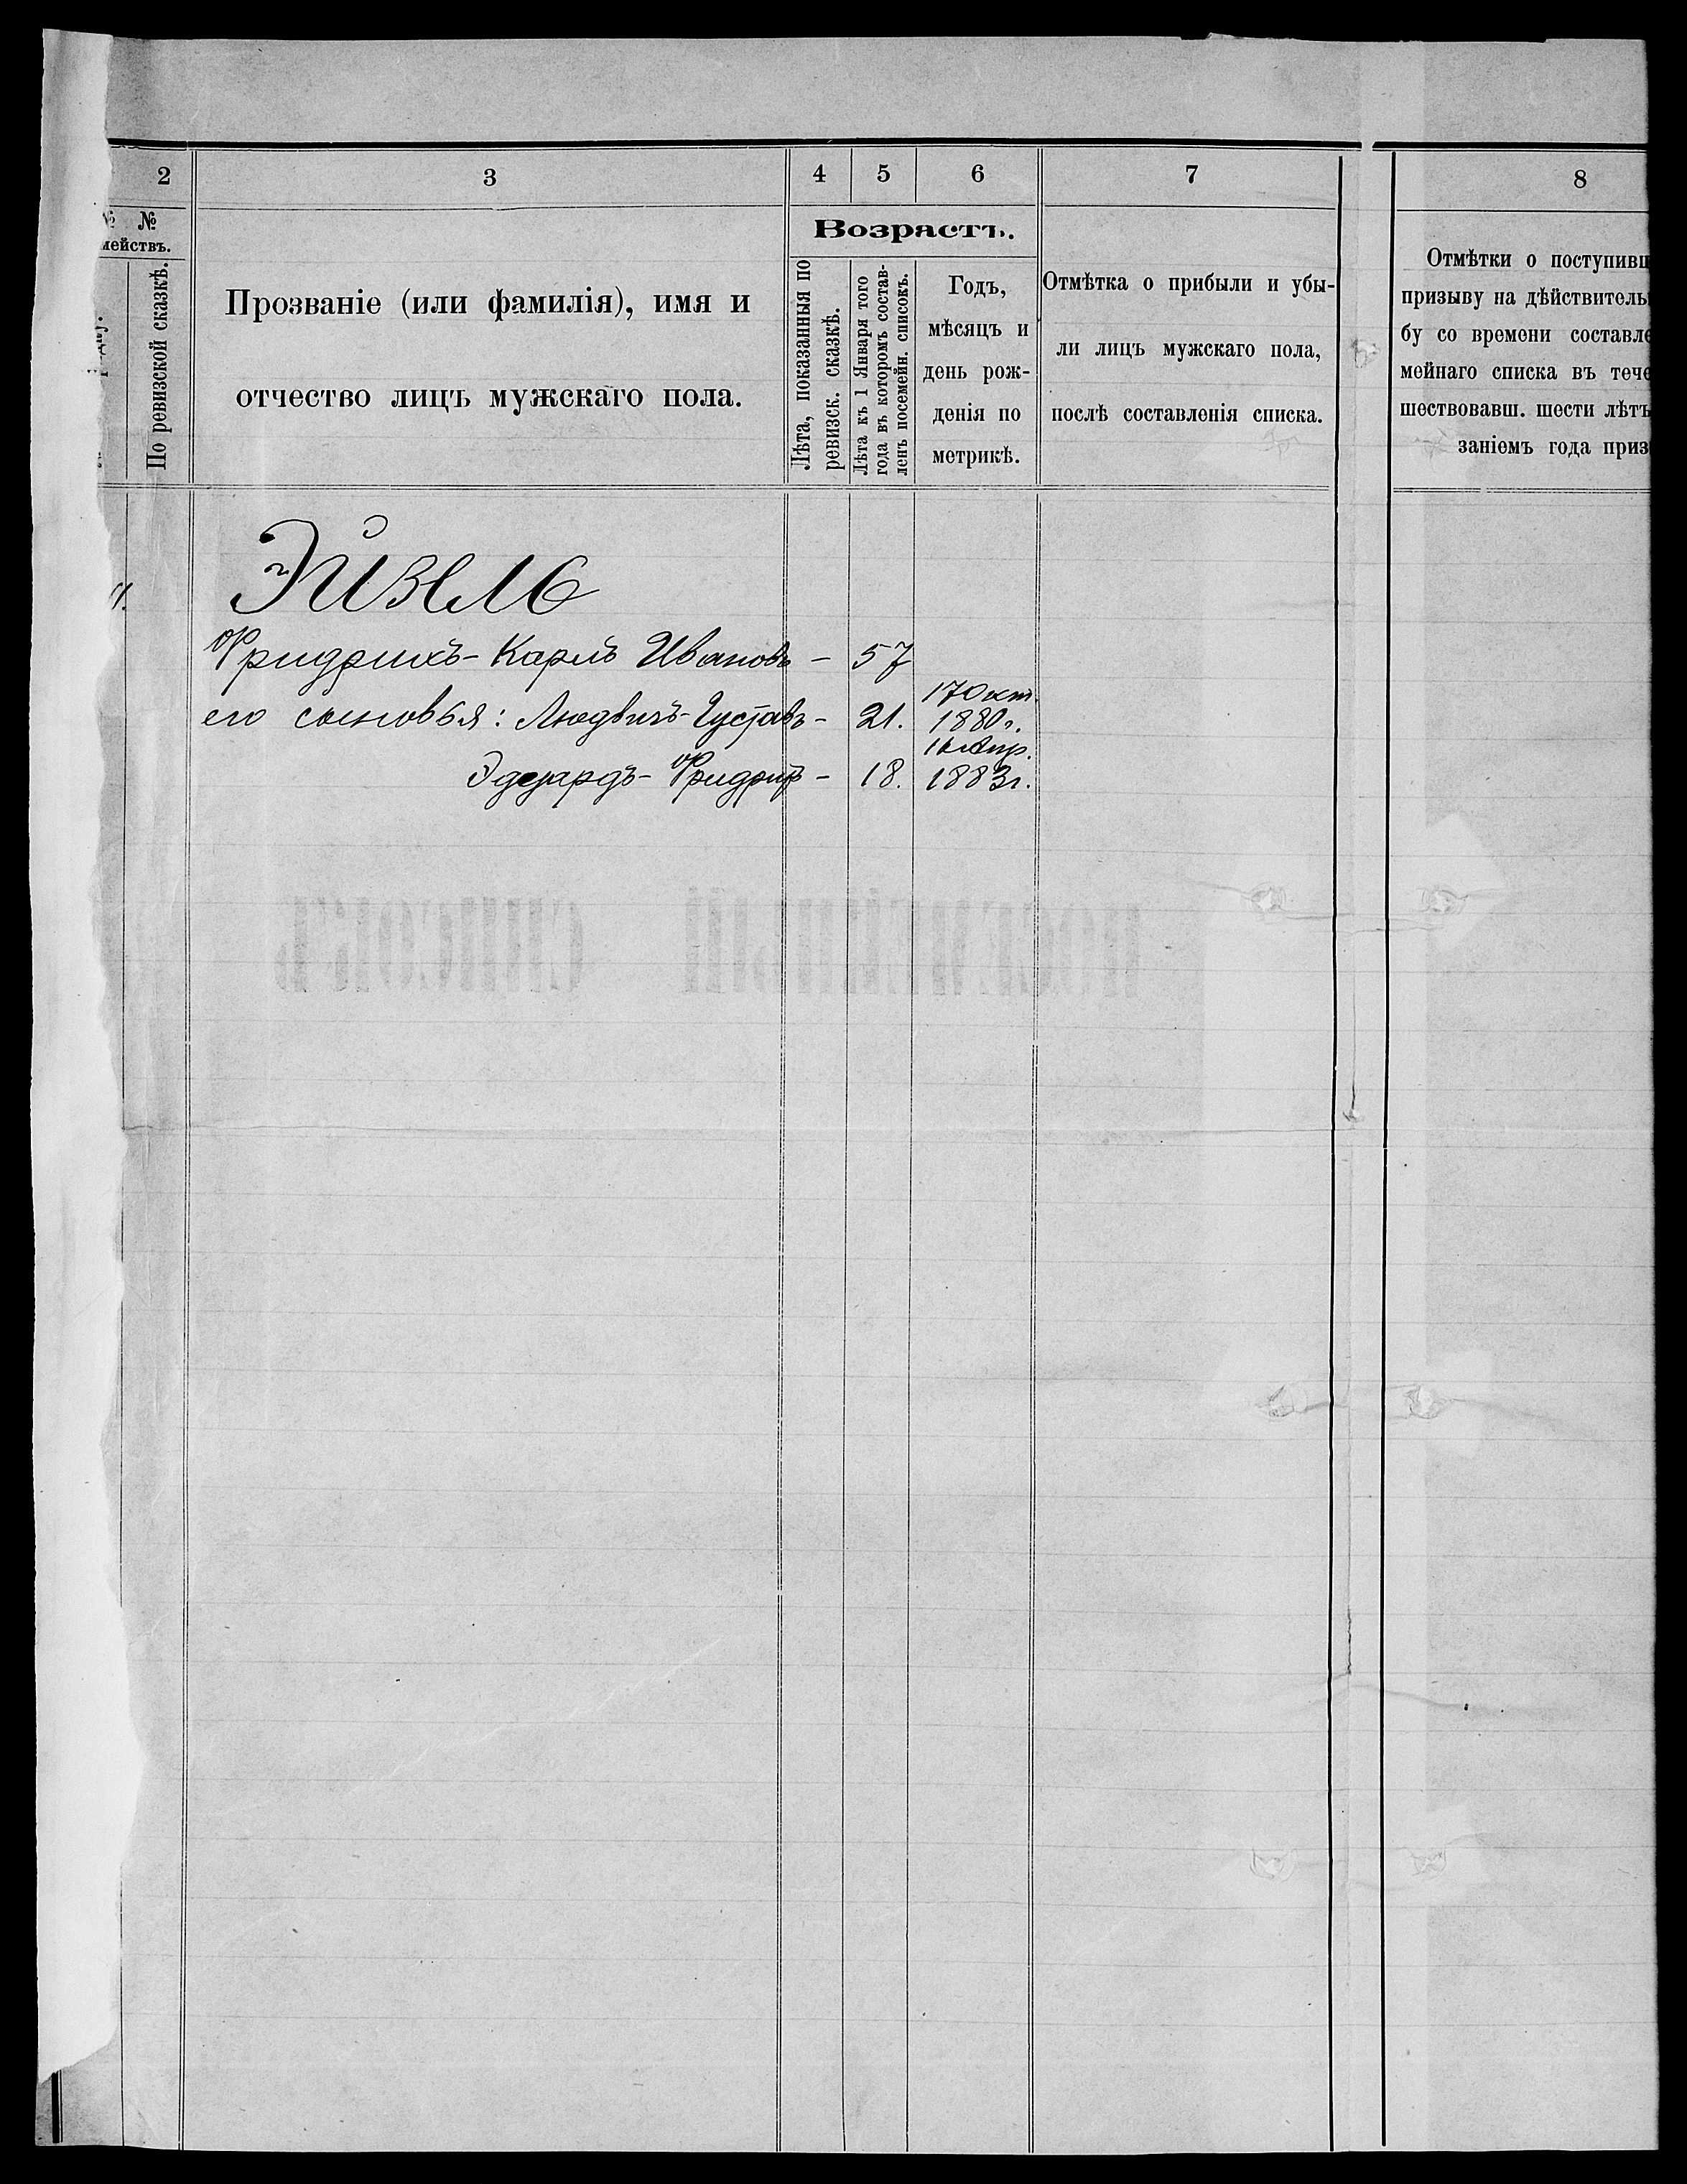 2
3
4
5
6
7
8
№ №
мействъ.
По ревизской сказкѣ.
Прозваніе (или фамилія), имя и
отчество лицъ мужскаго пола.
Возрастъ.
Лѣта, показанныя по
ревизск. сказкѣ.
Лѣта къ 1 Января того
года въ которомъ состав-
ленъ посемейн. списокъ.
Годъ,
мѣсяцъ и
день рож-
денія по
метрикѣ.
Отмѣтка о прибыли и убы-
ли лицъ мужскаго пола,
послѣ составленія списка.
Отмѣтки о поступивш
призыву на дѣйствитель
бу со времени составле
мейнаго списка въ тече
шествовавш. шести лѣтъ
заніемъ года приз
Эйзель
Фридрихъ-Карлъ Ивановъ – 57
17 Окт.
его сыновья: Людвигъ-Густавъ – 21. 1880 г.
Апр.
Эдуардъ-Фридрихъ – 18. 1883 г.
ПОСЕМЕЙНЫЙ СПИСОКЪ